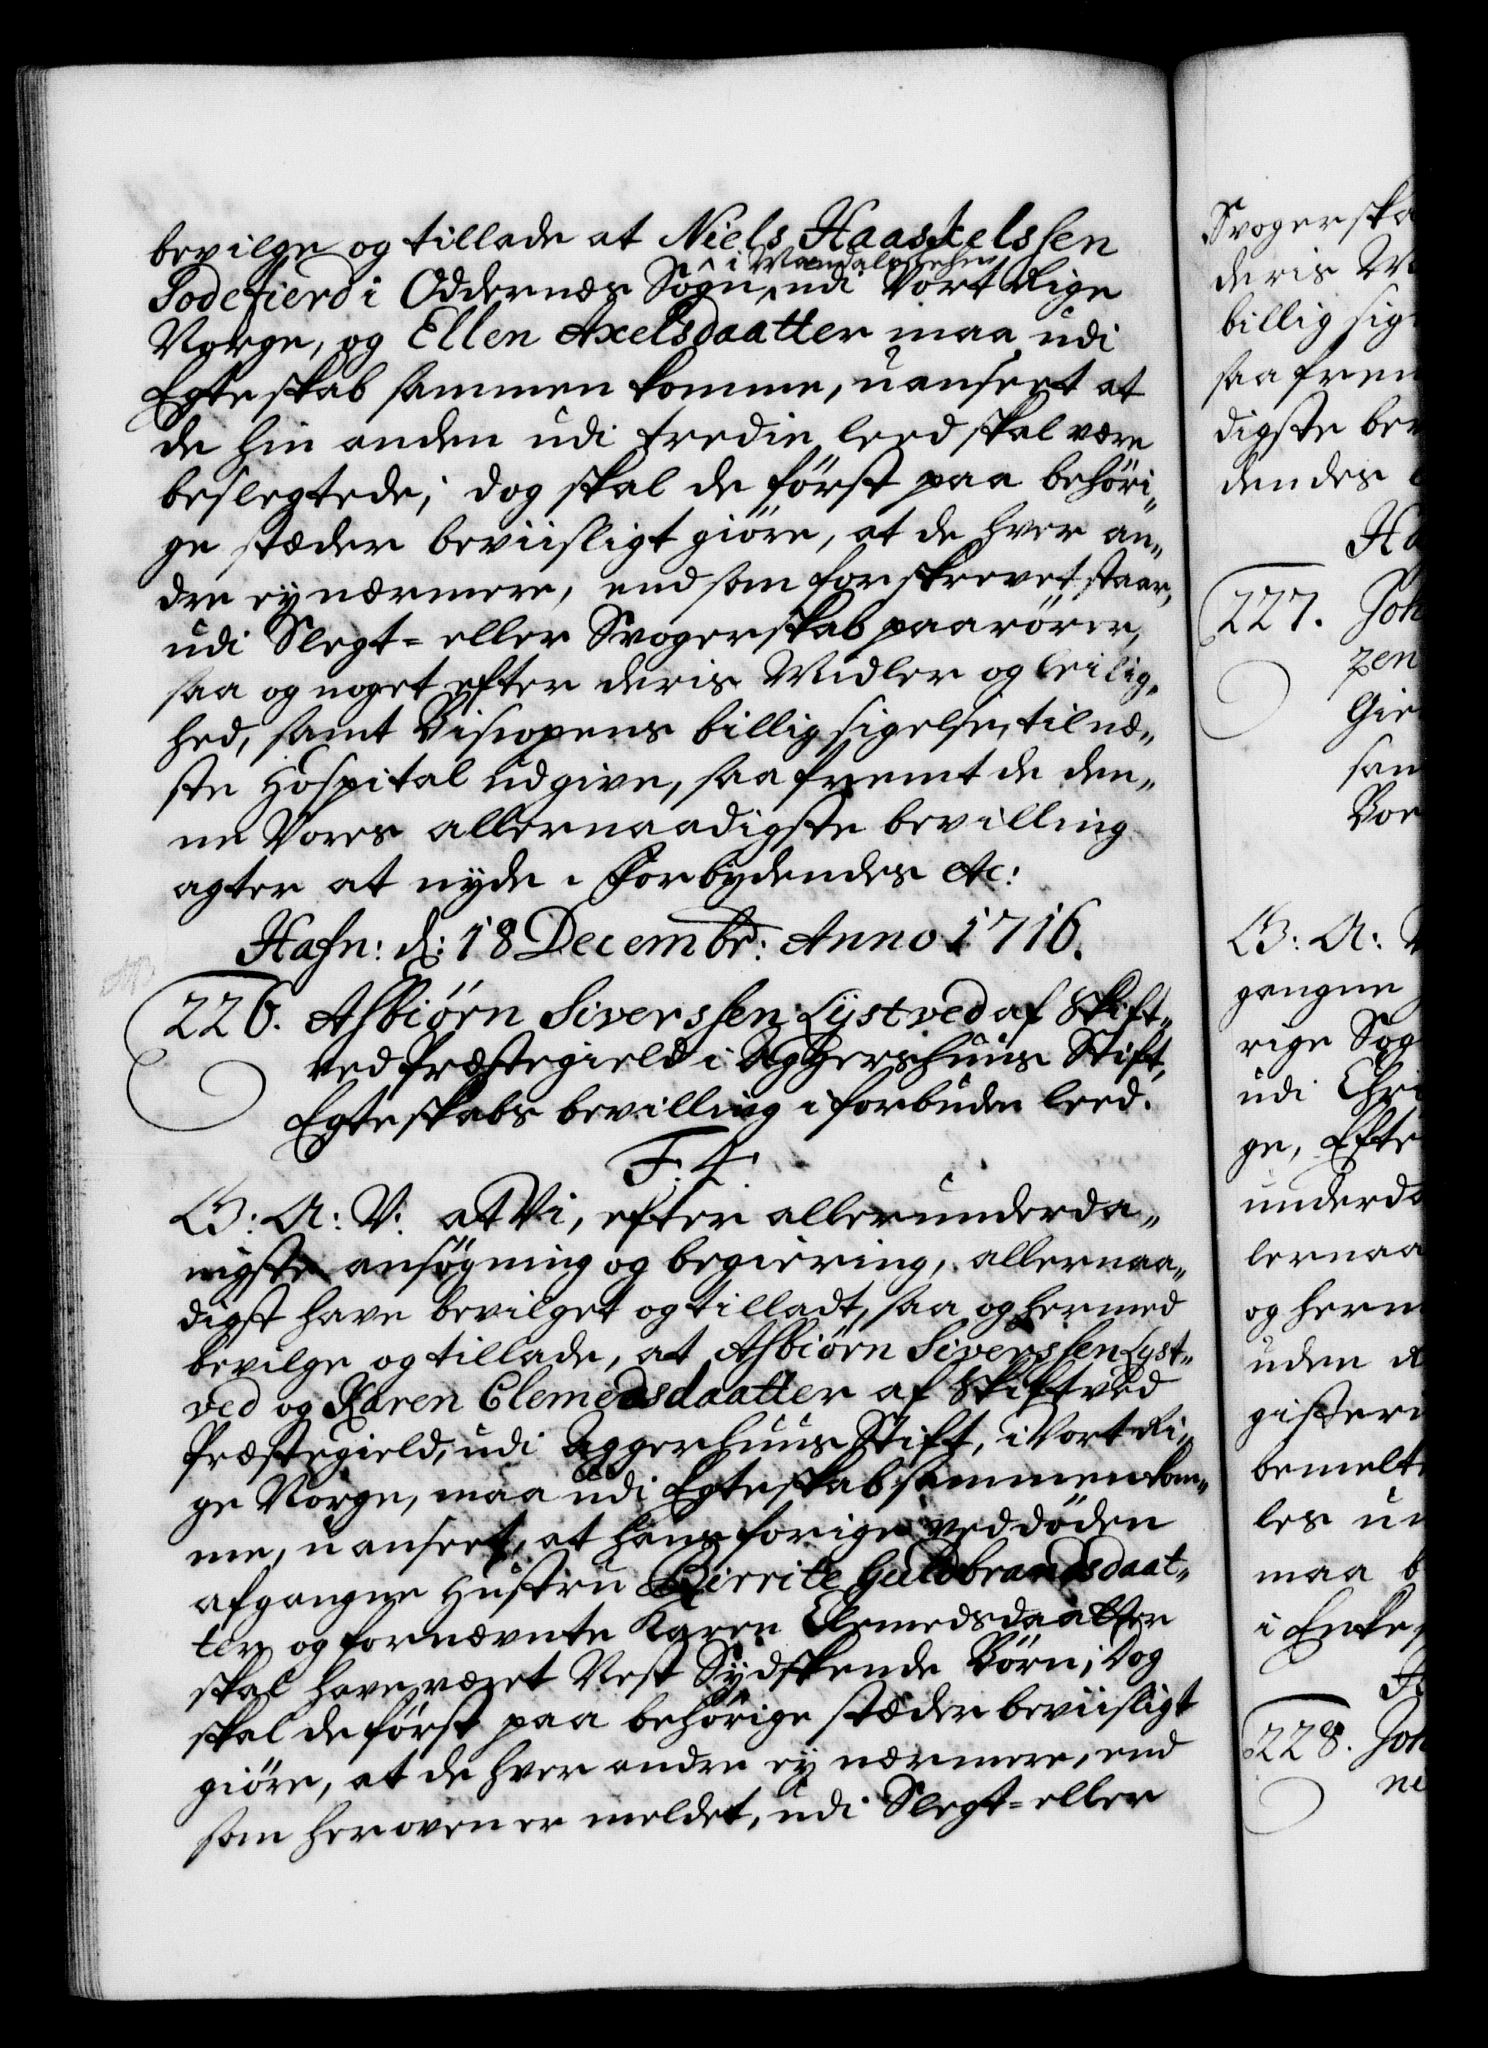 bevilge og tillade at Niels Haaskelssen
Todefierd i Oddernæs Sogn i Mandals Lehn udi Vort Rige
Norge, og Ellen Axelsdaatter maa udi
Egteskab sammen komme, uanseet at
de hin anden udi tredie leed skal være
beslegtede; dog skal de först paa behöri„
ge stæder beviisligt giöre, at de hver an„
dre ey nærmere, end som forskrevet staar,
udi Slegt- eller Svogerskab paarörer,
saa og noget efter deris Midler og leilig„
hed, samt Biscopens billig sigelse, til næ„
ste Hospital udgive, saa fremt de den„
ne Vores allernaadigste bevilling
agter at nyde. Forbydendes etc:
Hafn: d: 18 Decembr: Anno 1716.
226. Asbiörn Siverssen Lystved af Skift„
ved Præstegield i Aggershuus Stift,
Egteskabs bevilling i forbuden leed.
F. 4.
G: A: V: at Vi, efter allerunderda„
nigste ansögning og begiering, allernaa„
digst have bevilget og tilladt, saa og hermed
bevilge og tillade, at Asbiörn Siverssen Lyst„
ved og Karen Clemedsdaatter af Skiftved
Præstegield, udi Aggerhuus Stift, i Vort Ri„
ge Norge, maa udi Egteskab sammenkom„
me, uanseet, at hans forige ved döden
afgangne Hustru Birrite Guldbrandsdaat„
ter og fornævnte Karen Clemedsdaatter
skal have været Nest Sydskende Börn; Dog
skal de först paa behörige stæder beviisligt
giöre, at de hver andre ey nærmere, end
som her oven er meldet, udi Slegt- eller
Svogerska
deris Mi
billig sig
saa frem
digste bev
dendes
Ha
227. Joh
zen
Gie
san
Bor
G: A: V
gangne
rige Sog
udi Chri
ge, Efte
underda
lernaa
og herm
uden
gister
bemelt
les un
maa b
i Enke
228. Joh
ne